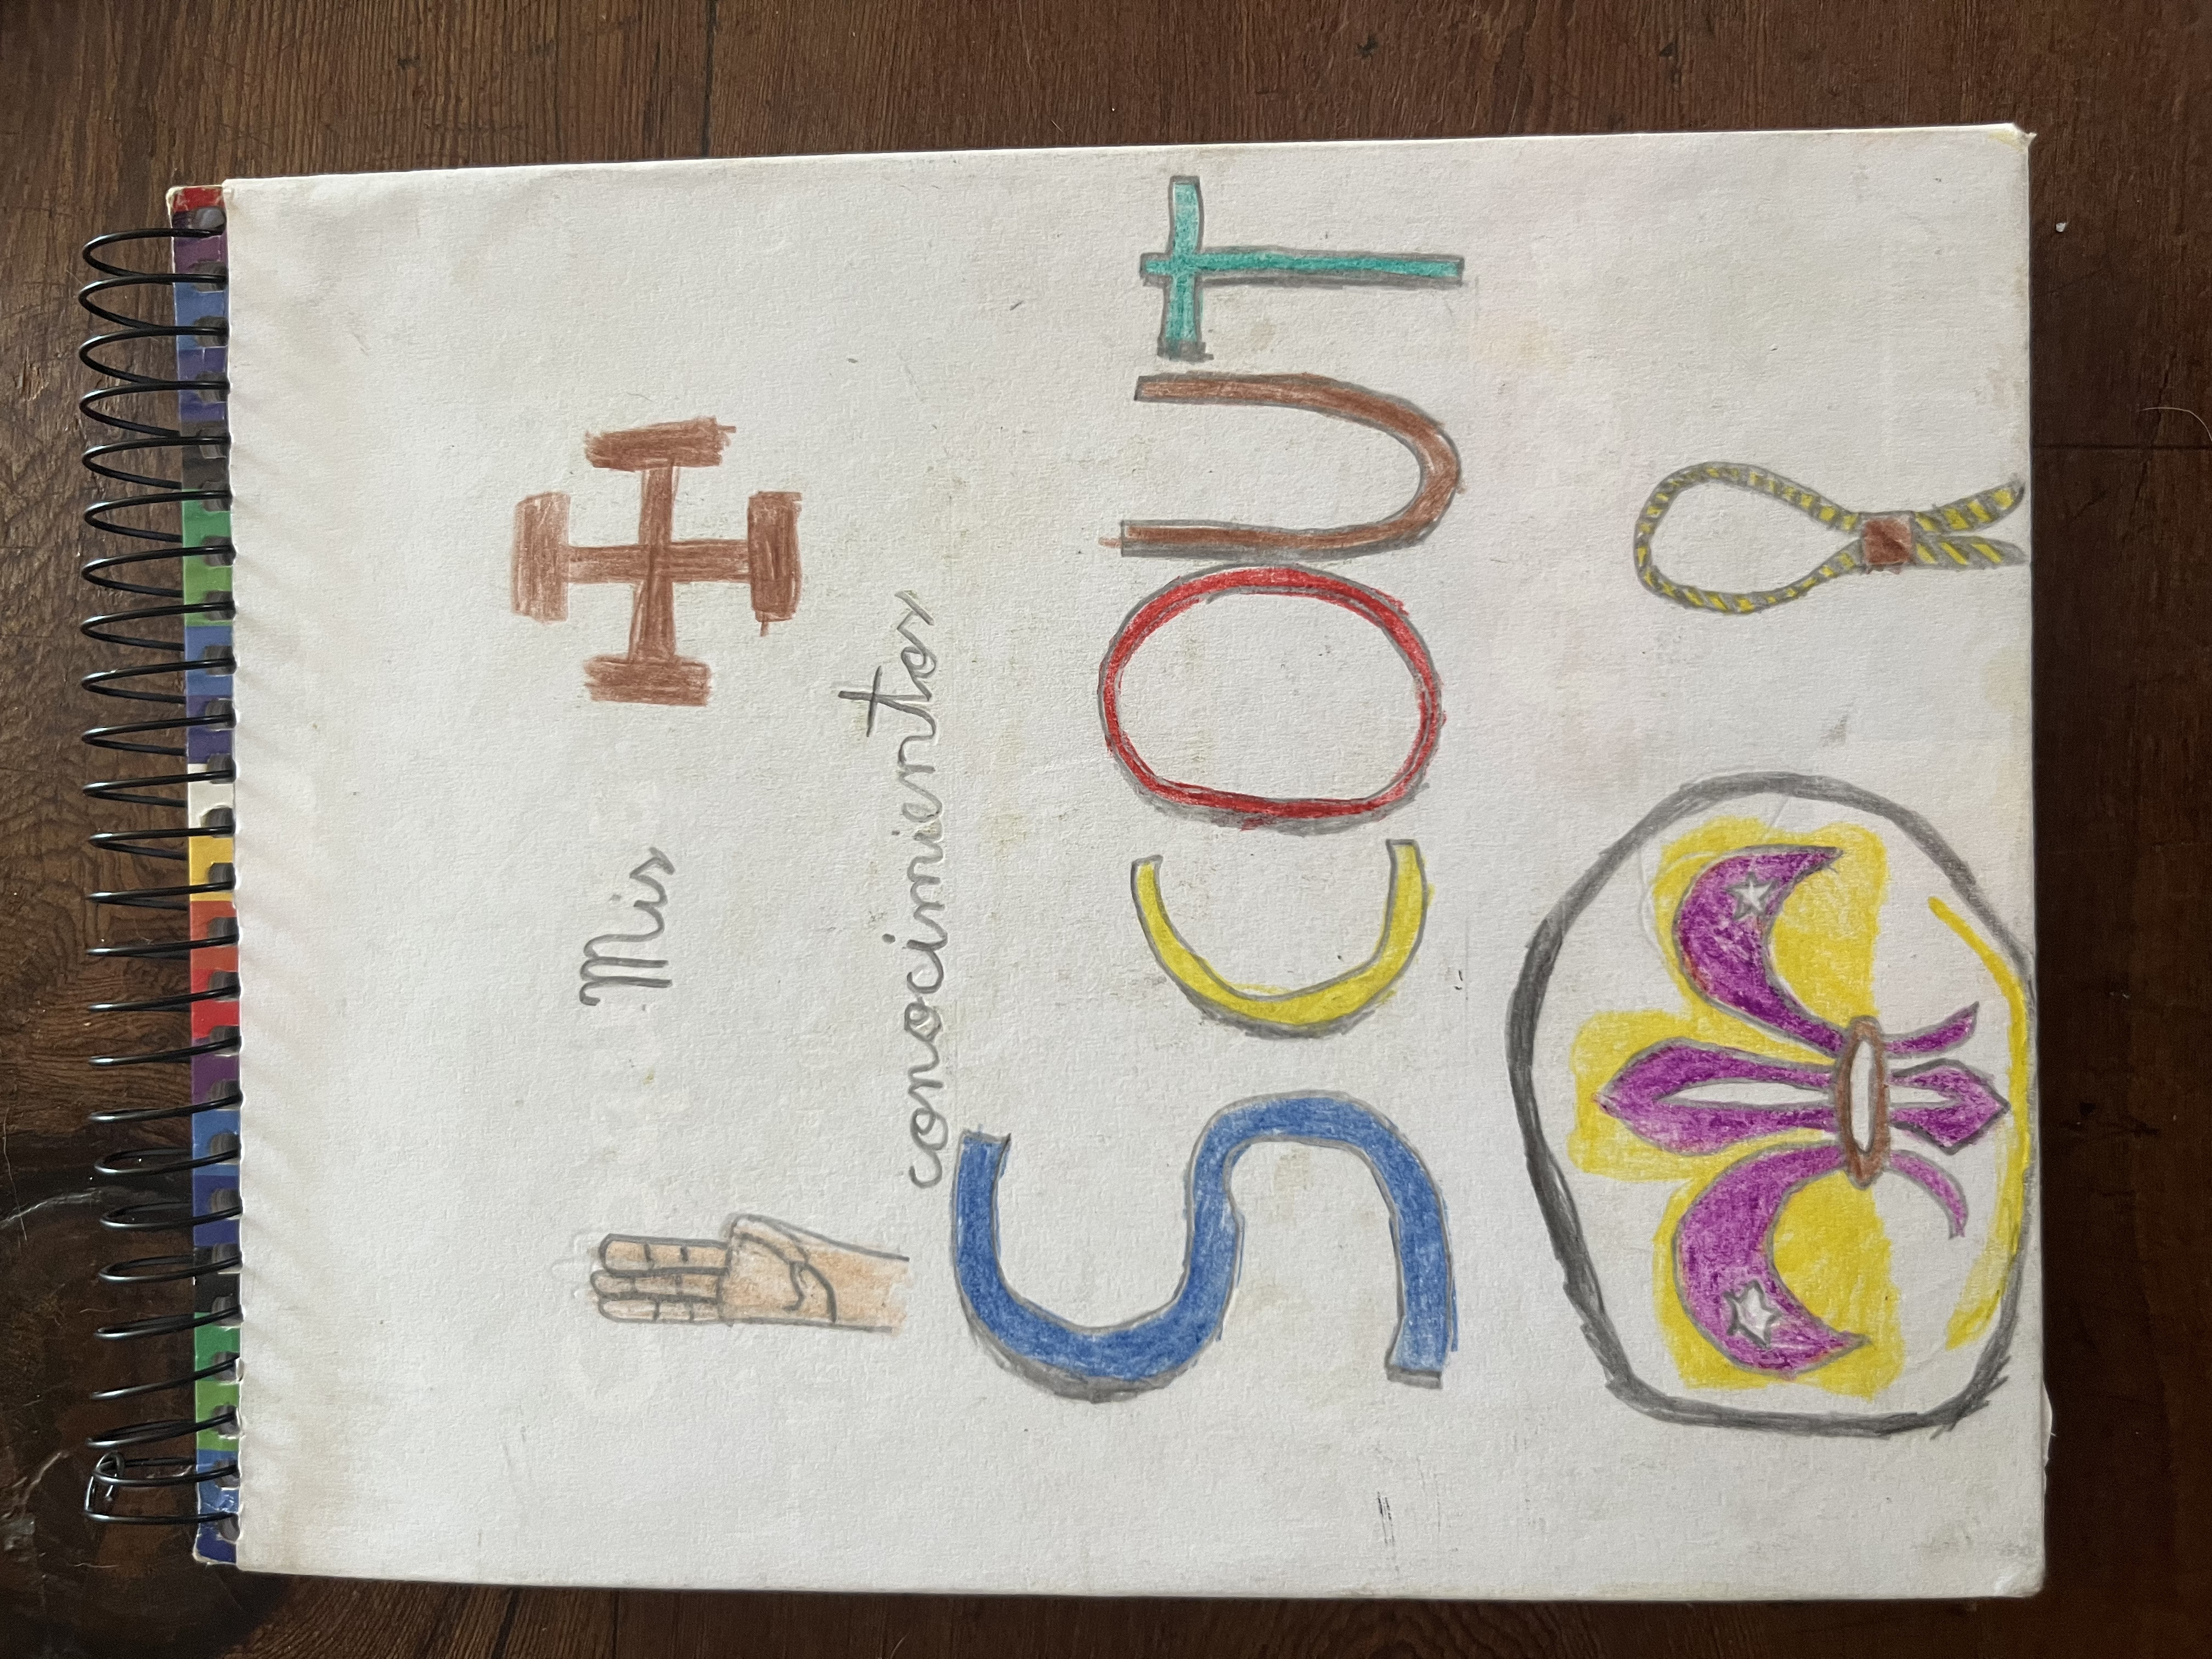 Mis
conocimientos
Scout